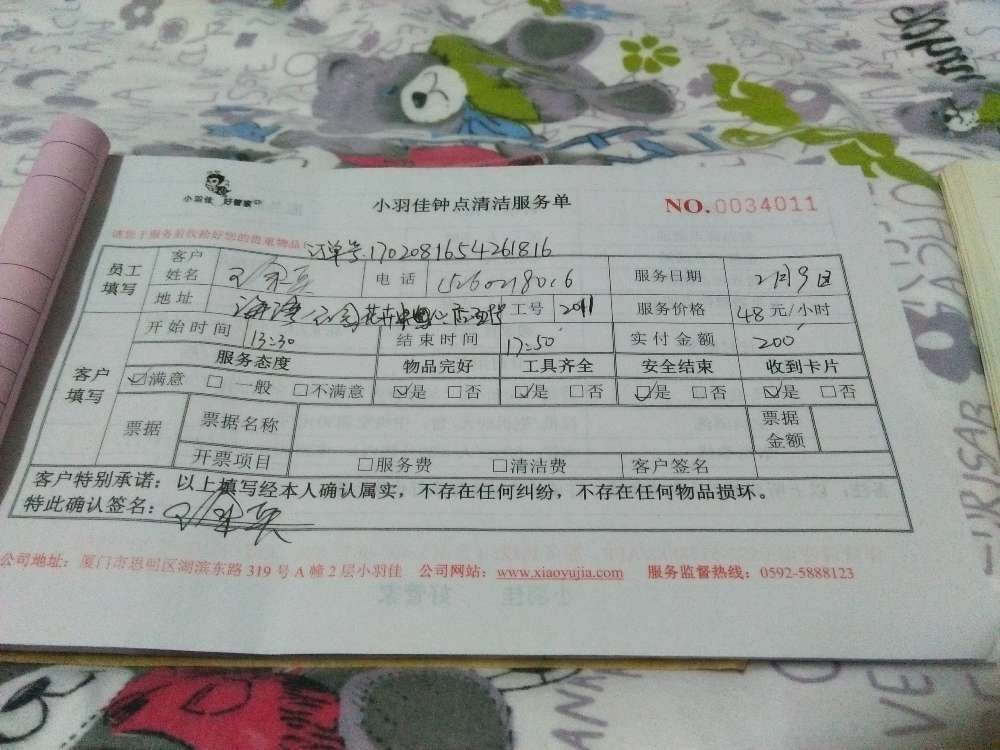 小羽佳 好管家
小羽佳钟点清洁服务单
NO.0034011
请您于服务前收捡好您的贵重物品
订单号.1702081654261816
员工填写
客户姓名
电话
服务日期 2月9日
地址 海湾公园
工号 2011
服务价格 48元/小时
开始时间 13:30
结束时间 17:50
实付金额 200
客户填写
服务态度 物品完好 工具齐全 安全结束 收到卡片
☑满意 □一般 □不满意 ☑是 □否 ☑是 □否 ☑是 □否 ☑是 □否
票据 票据名称 票据金额
开票项目 □服务费 □清洁费 客户签名
客户特别承诺:以上填写经本人确认属实,不存在任何纠纷,不存在任何物品损坏。
特此确认签名:
公司地址:厦门市思明区湖滨东路 319 号 A 幢 2 层小羽佳 公司网站:www.xiaoyujia.com 服务监督热线:0592-5888123